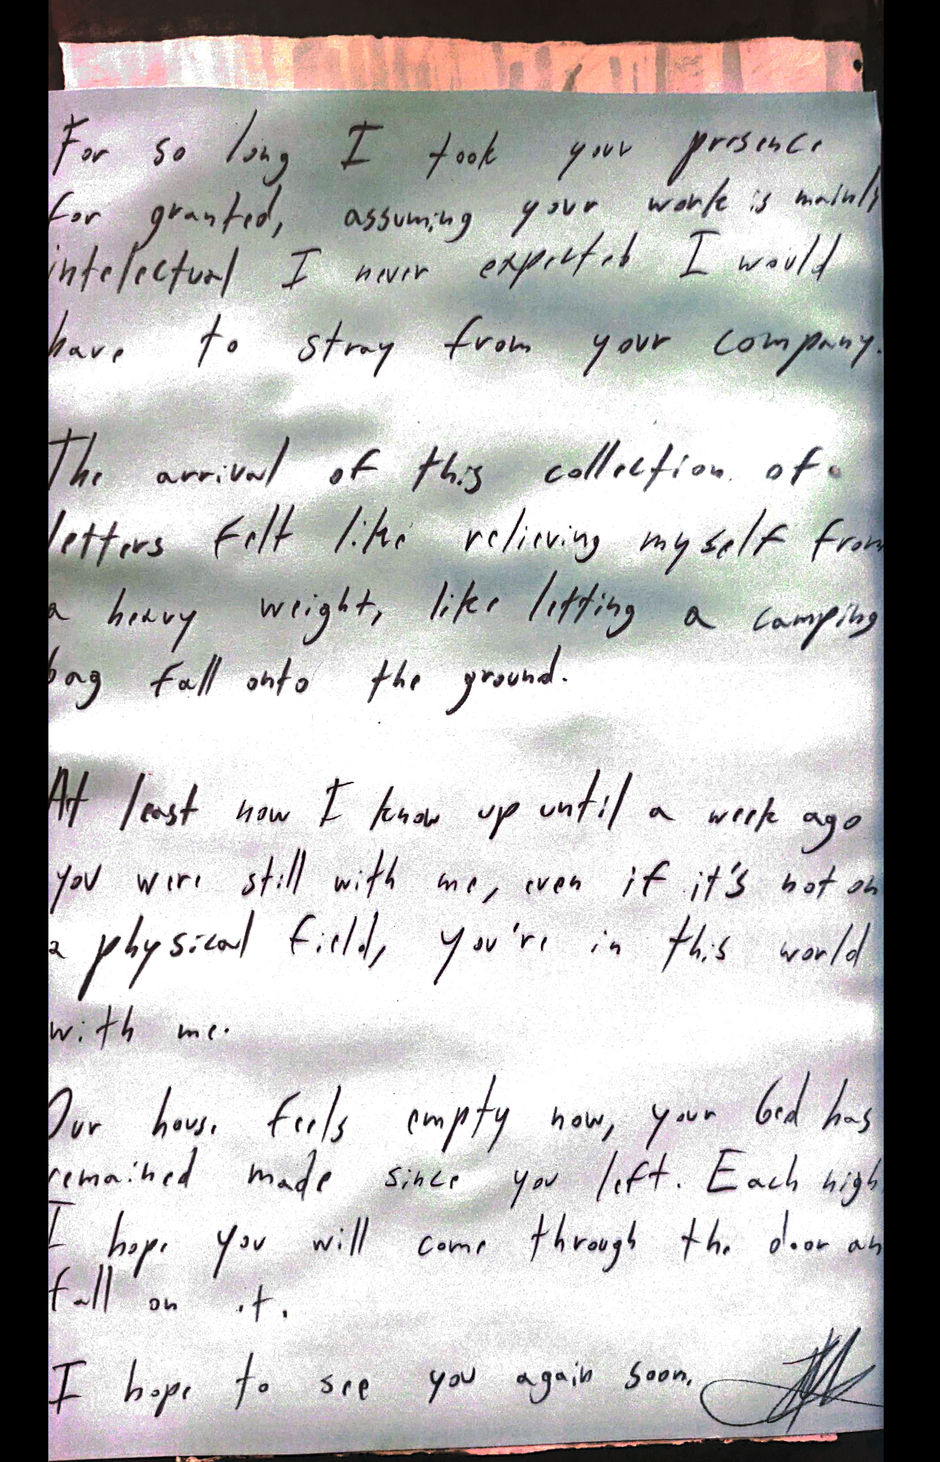 For so long I took your presence
for granted, assuming your work is mainly
intelectual I never expected I would
have to stray from your company.
The arrival of this collection of
letters felt like relieving myself from
a heavy weight, like letting a camping
bag fall onto the ground.
At least now I know up until a week ago
you were still with me, even if it's not on
a physical field, you're in this world
with me.
Our house feels empty now, your bed has
remained made since you left. Each nigh
I hope you will come through the door an
fall on it.
I hope to see you again soon.